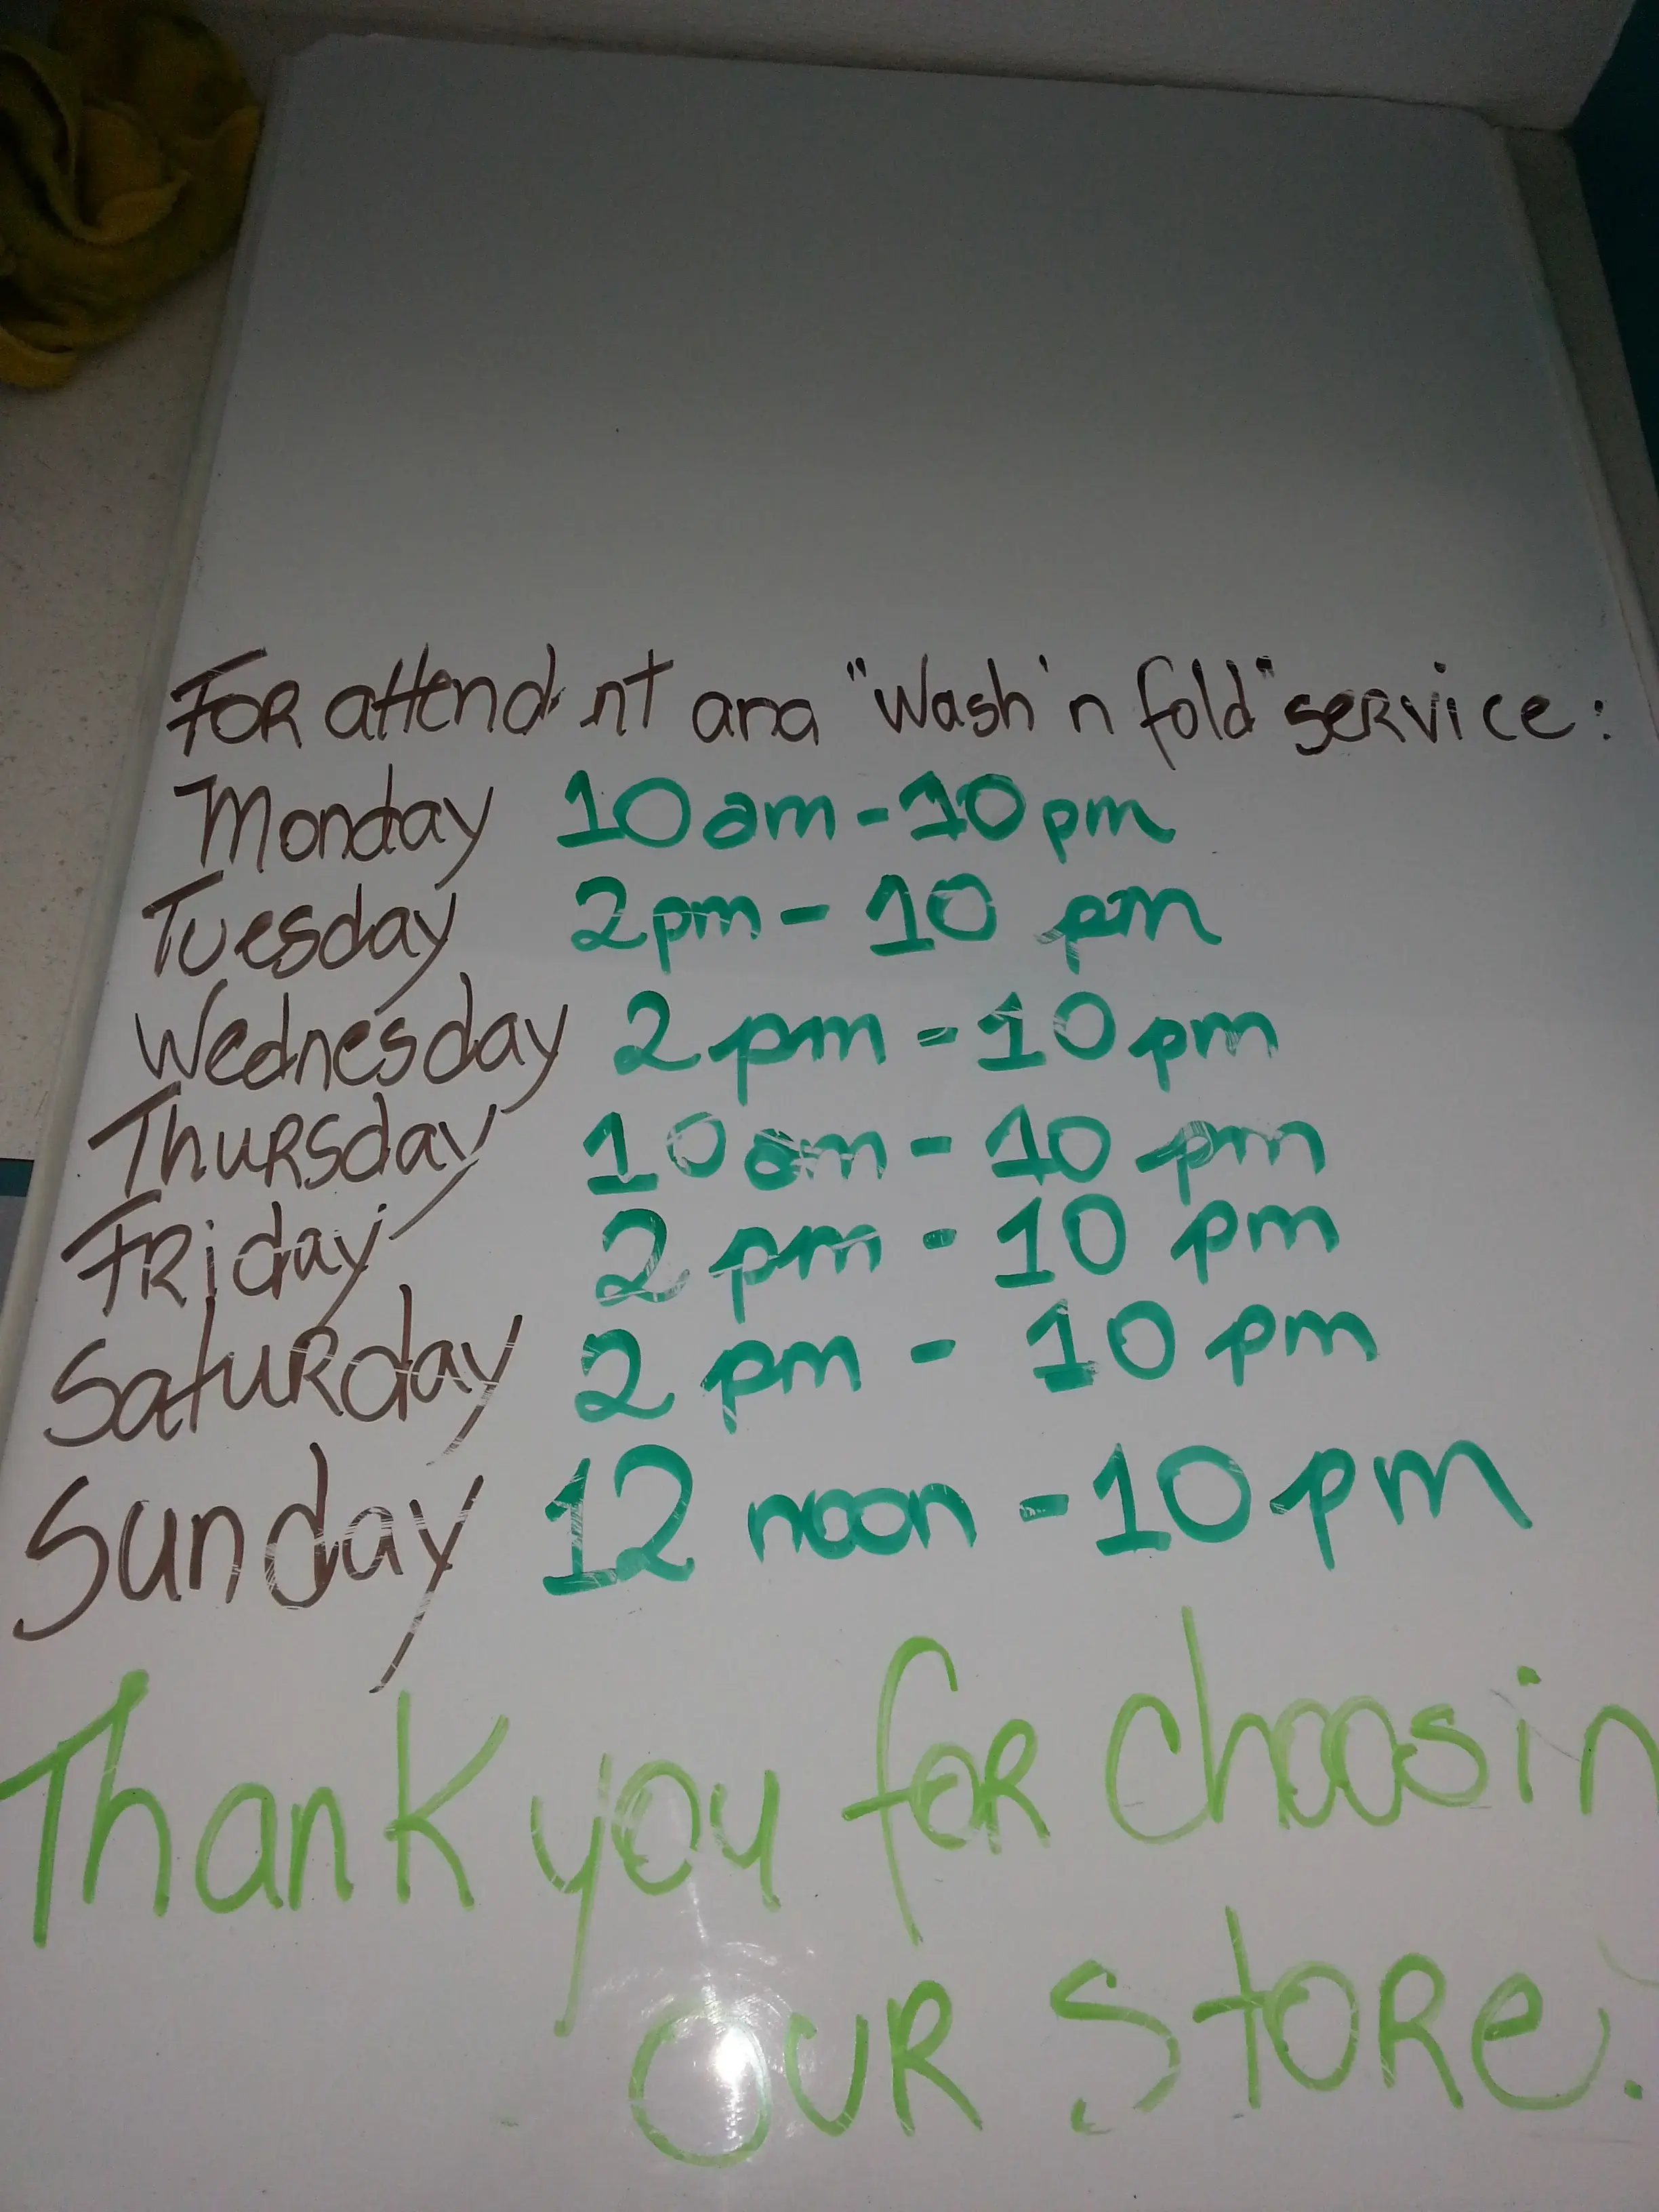 For attend nt and "Wash 'n fold" service:
Monday 10 am - 10 pm
Tuesday 2 pm - 10 pm
Wednesday 2 pm - 10 pm
Thursday 10 am - 10 pm
Friday 2 pm - 10 pm
Saturday 2 pm - 10 pm
Sunday 12 noon - 10 pm
Thank you for choosin
our store.